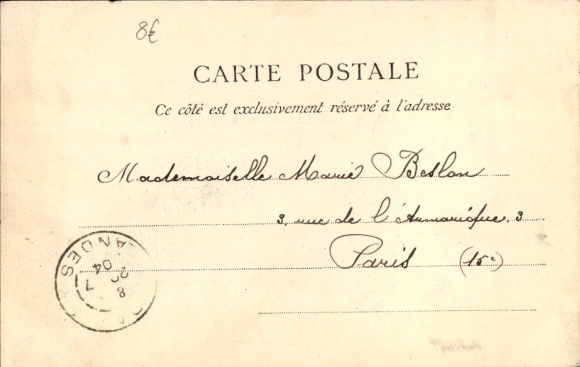 8€
CARTE POSTALE
Ce côté est exclusivement réservé à l'adresse
Mademoiselle Marie Beslon
3, rue de l'Armorique, 3
Paris (15e)
ANDES
8
20
7
04